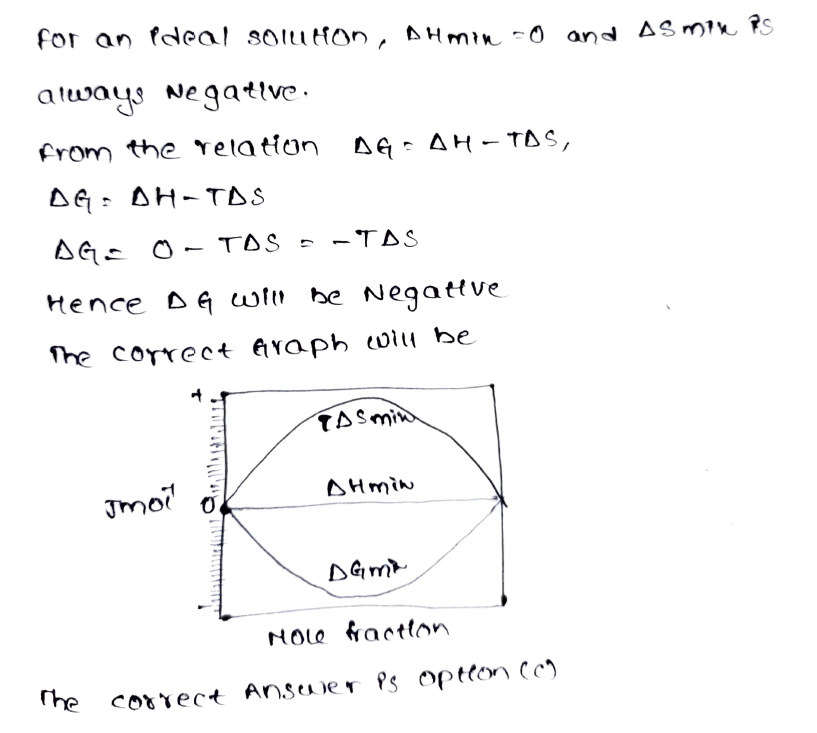 For an ideal solution, ΔHmin = 0 and ΔSmin is
always Negative.
From the relation ΔG = ΔH - TΔS,
ΔG = ΔH - TΔS
ΔG = 0 - TΔS = -TΔS
Hence ΔG will be Negative
The correct Graph will be
+
TΔSmin
ΔHmin
Jmol⁻¹ 0
ΔGmin
-
Mole fraction
The correct Answer is option (c)